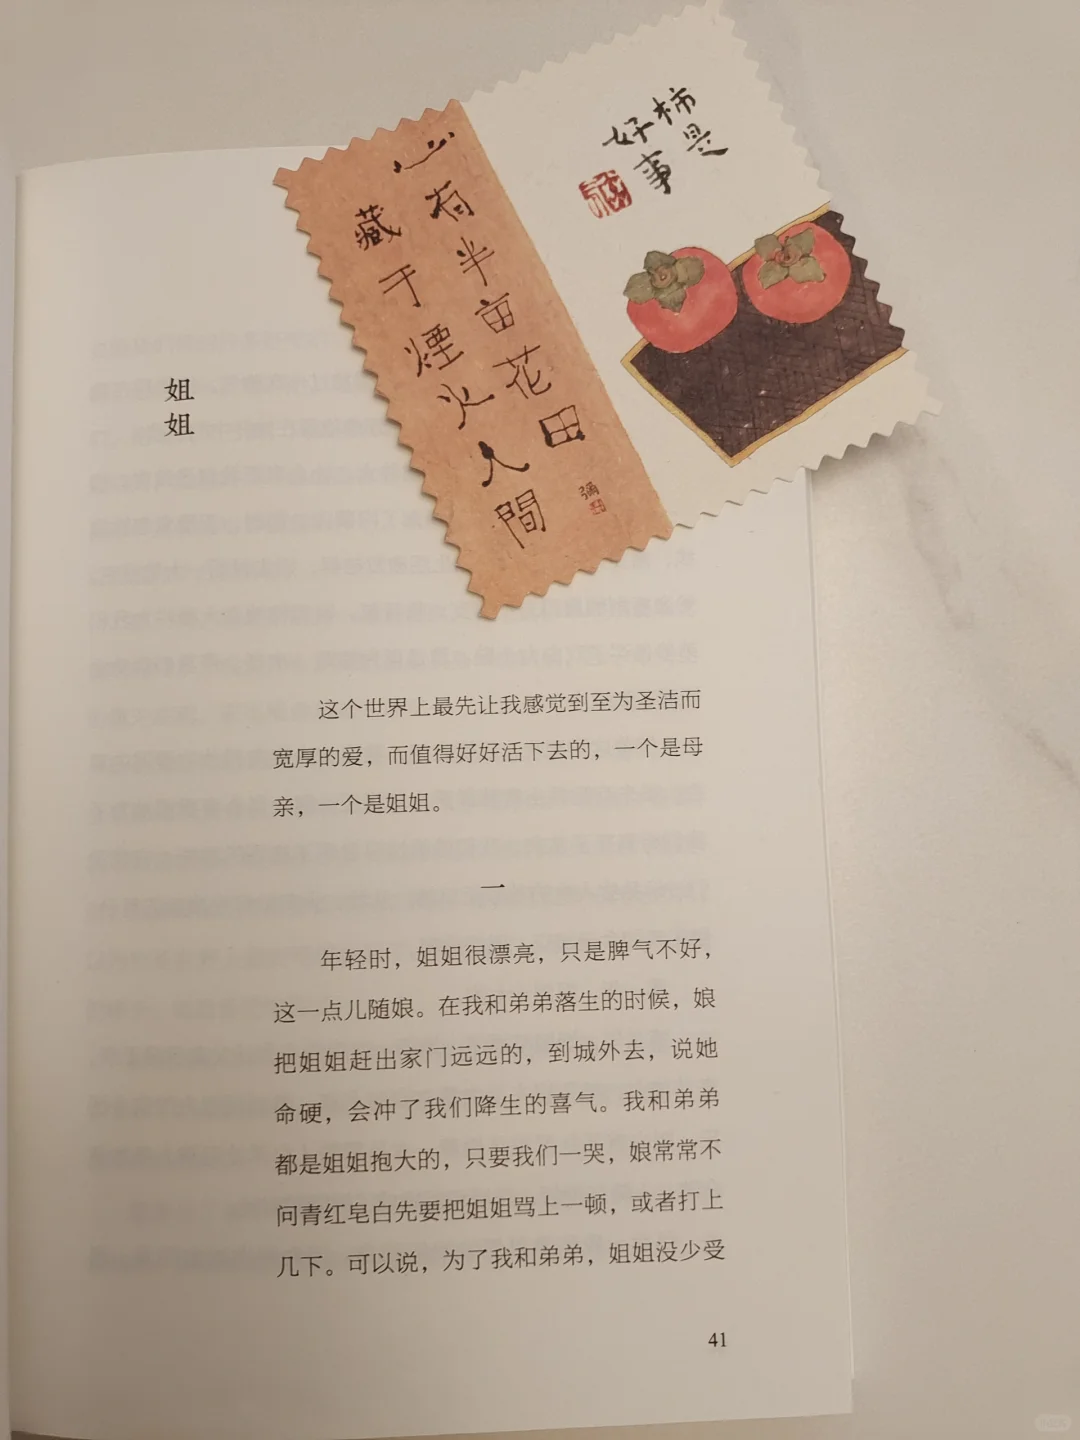 柿是
好事
山有半亩花田
藏于煙火人間
姐姐
这个世界上最先让我感觉到至为圣洁而
宽厚的爱，而值得好好活下去的，一个是母
亲，一个是姐姐。
一
年轻时，姐姐很漂亮，只是脾气不好，
这一点儿随娘。在我和弟弟落生的时候，娘
把姐姐赶出家门远远的，到城外去，说她
命硬，会冲了我们降生的喜气。我和弟弟
都是姐姐抱大的，只要我们一哭，娘常常不
问青红皂白先要把姐姐骂上一顿，或者打上
几下。可以说，为了我和弟弟，姐姐没少受
41